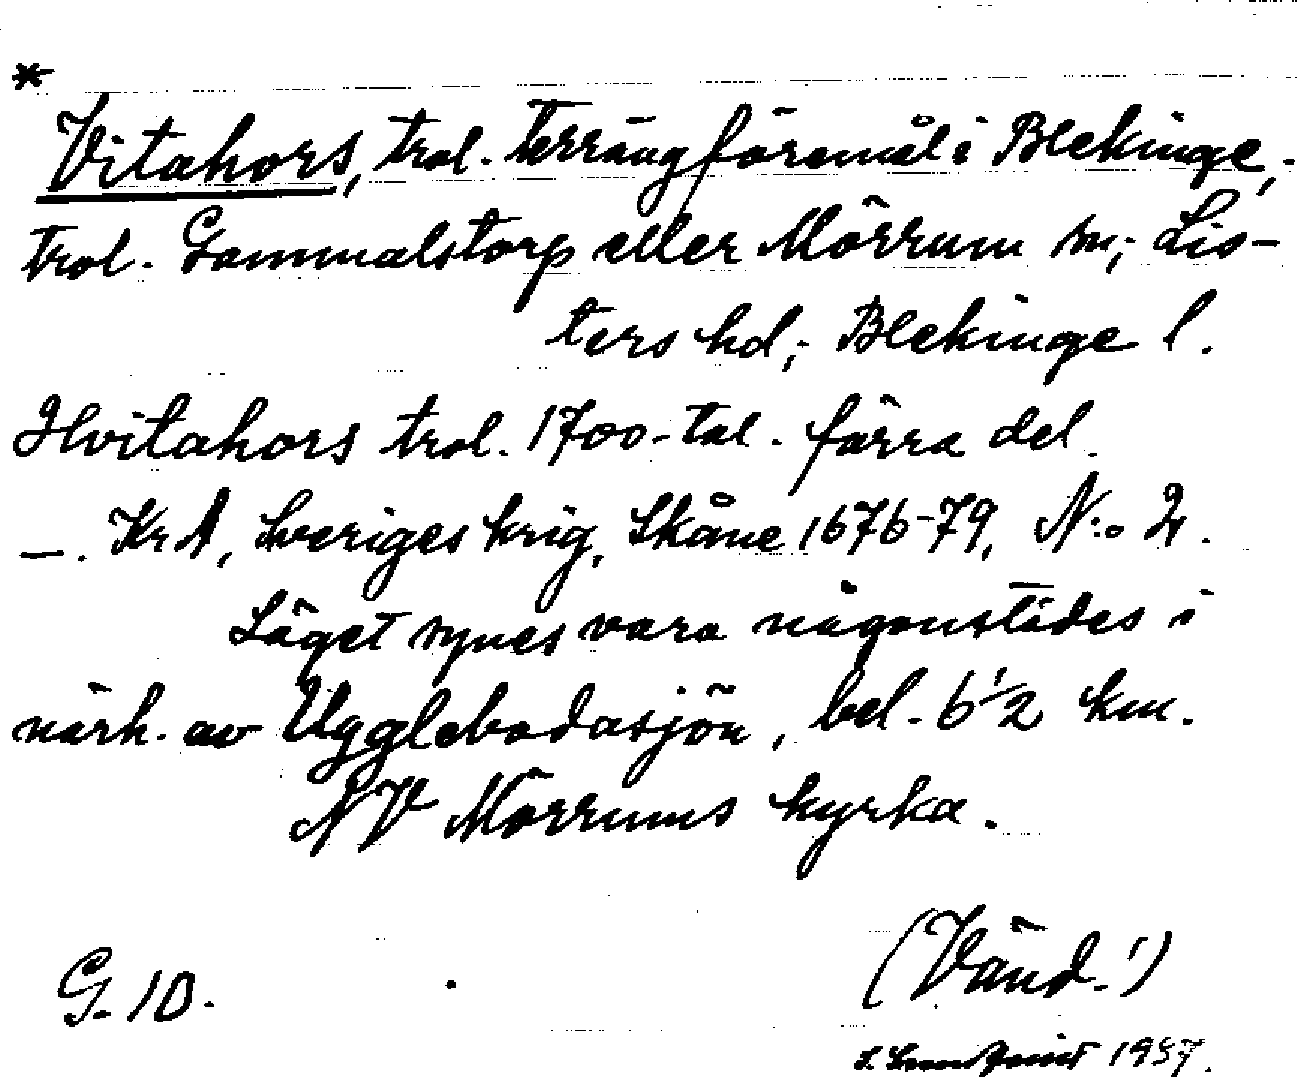 *
Vitahors, trol. terrängföremål i Blekinge,
trol. Gammalstorp eller Mörrum sn, Lis-
ters hd, Blekinge l.
Hvitahors trol. 1700-tal. förra del.
—. KrA, Sveriges krig, Skåne 1676-79, N:o 2.
Läget synes vara någonstädes i
närh. av Ugglebodasjön, bel. 6 1/2 km.
NV Mörrums kyrka.
(Vänd!)
G. 10.
1957.